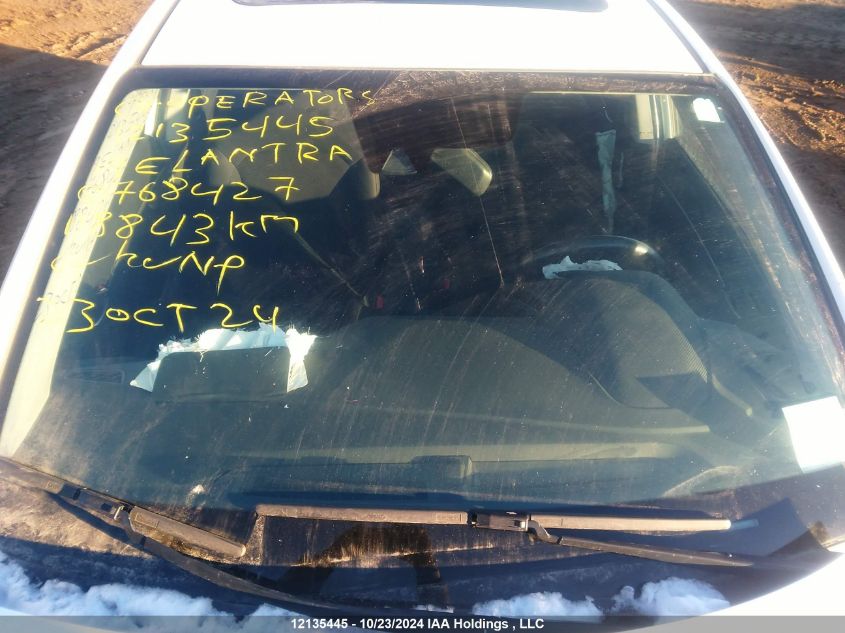 CO-OPERATORS
12135445
ELANTRA
0768427
KM
NP
23 OCT 24
12135445 - 10/23/2024 IAA Holdings , LLC